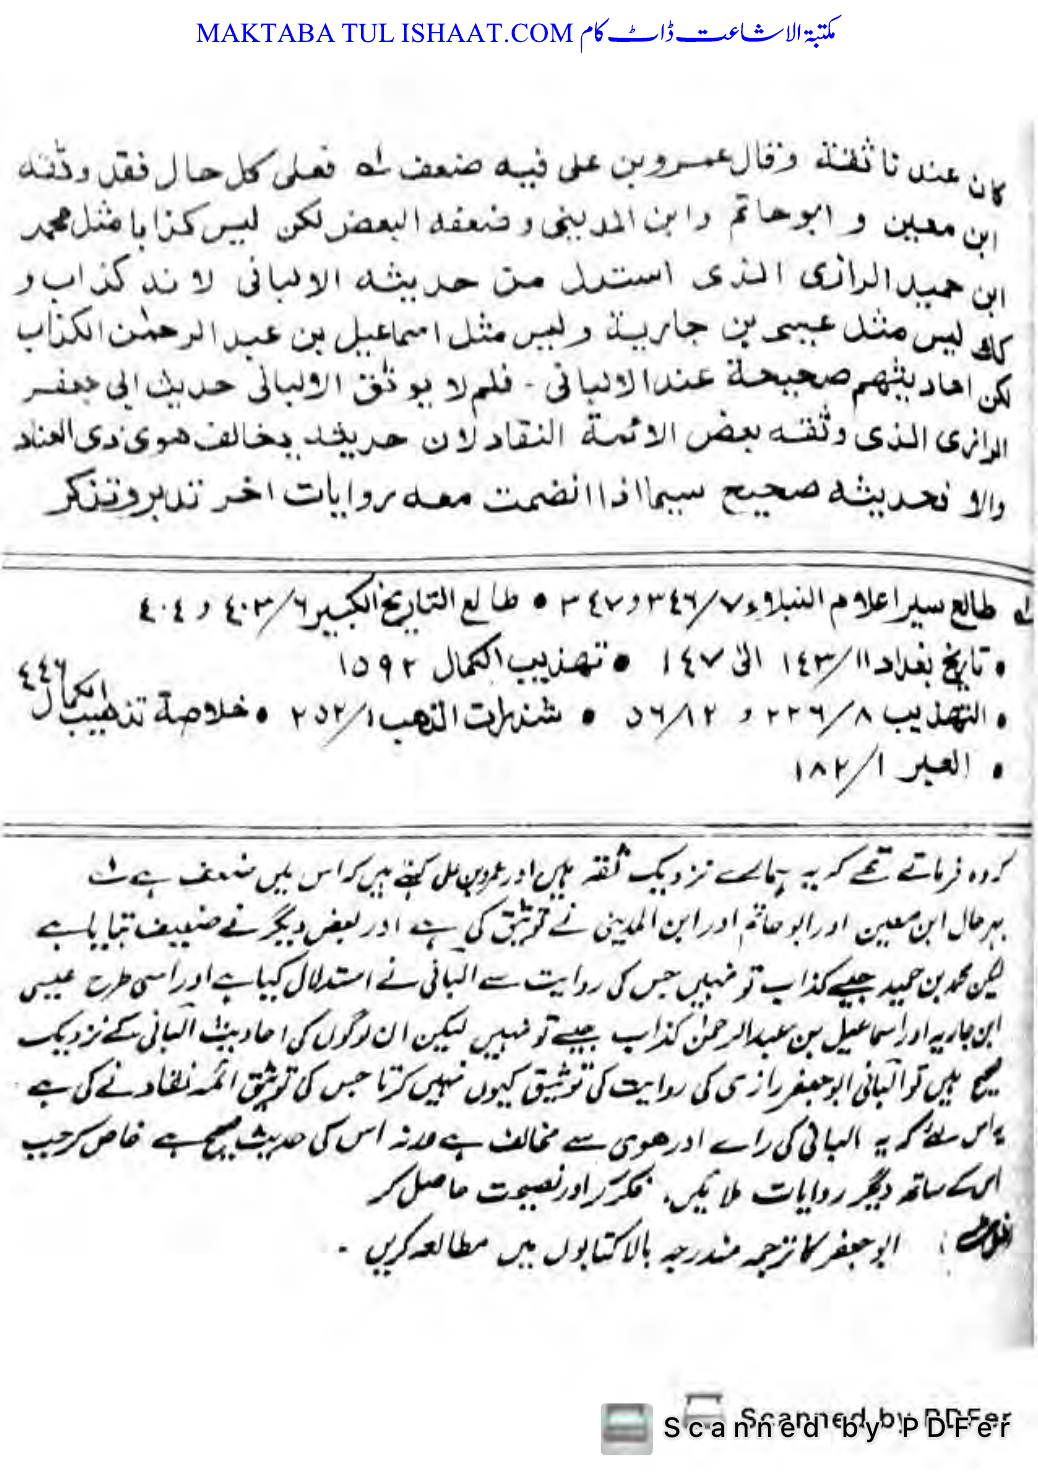 MAKTABA TUL ISHAAT.COM مکتبۃ الاشاعت ڈاٹ کام
كان عندنا ثقة وقال عمرو بن على فيه ضعف له فعلى كل حال فقد وثقه
ابن معين و ابوحاتم وابن المديني وضعفه البعض لكن ليس كذابا مثل محمد
ابن حميد الرازى الذى استدل من حديثه الالبانى لانه كذاب و
كذا ليس مثل عيسى بن جارية وليس مثل اسماعيل بن عبد الرحمٰن الكذاب
لكن احاديثهم صحيحة عند الالبانى - فلم لا يوثق الالبانى حديث ابى جعفر
الرازى الذى وثقه بعض الائمة النقاد لان حديثه يخالف هوى ذى العناد
والا فحديثه صحيح سيما اذا انضمت معه روايات اخر تدبر وتذكر
له طالع سير اعلام النبلاء ٣٤٦/٧ و ٣٤٧ • طالع التاريخ الكبير ٤٠٣/٦ و ٤٠٤
• تاريخ بغداد ١٤٣/١١ الى ١٤٧ • تهذيب الكمال ١٥٩٢
• التهذيب ٢٢٦/٨ و ٥٦/١٢ • شذرات الذهب ٢٥٢/١ • خلاصة تذهيب الكمال ٤٤٦
• العبر ١٨٢/١
کہ وہ فرماتے تھے کہ یہ ہمارے نزدیک ثقہ ہیں اور عمرو بن علی کہتے ہیں کہ اس میں ضعف ہے
بہرحال ابن معین اور ابو حاتم اور ابن المدینی نے توثیق کی ہے اور بعض دیگر نے ضعیف بتایا ہے
لیکن محمد بن حمید جیسے کذاب تو نہیں جس کی روایت سے البانی نے استدلال کیا ہے اور اسی طرح عیسی
ابن جاریہ اور اسماعیل بن عبدالرحمٰن کذاب جیسے تو نہیں لیکن ان لوگوں کی احادیث البانی کے نزدیک
صحیح ہیں تو البانی ابو جعفر رازی کی روایت کی توثیق کیوں نہیں کرتا جس کی توثیق ائمہ نقاد نے کی ہے
یہ اس لئے کہ یہ البانی کی رائے اور ھوی سے مخالف ہے ورنہ اس کی حدیث صحیح ہے خاص کر جب
اس کے ساتھ دیگر روایات ملائیں، فکر کر اور نصیحت حاصل کر
نوٹ : ابو جعفر کا ترجمہ مندرجہ بالا کتابوں میں مطالعہ کریں -
Scanned by PDFer
Scanned by PDFer